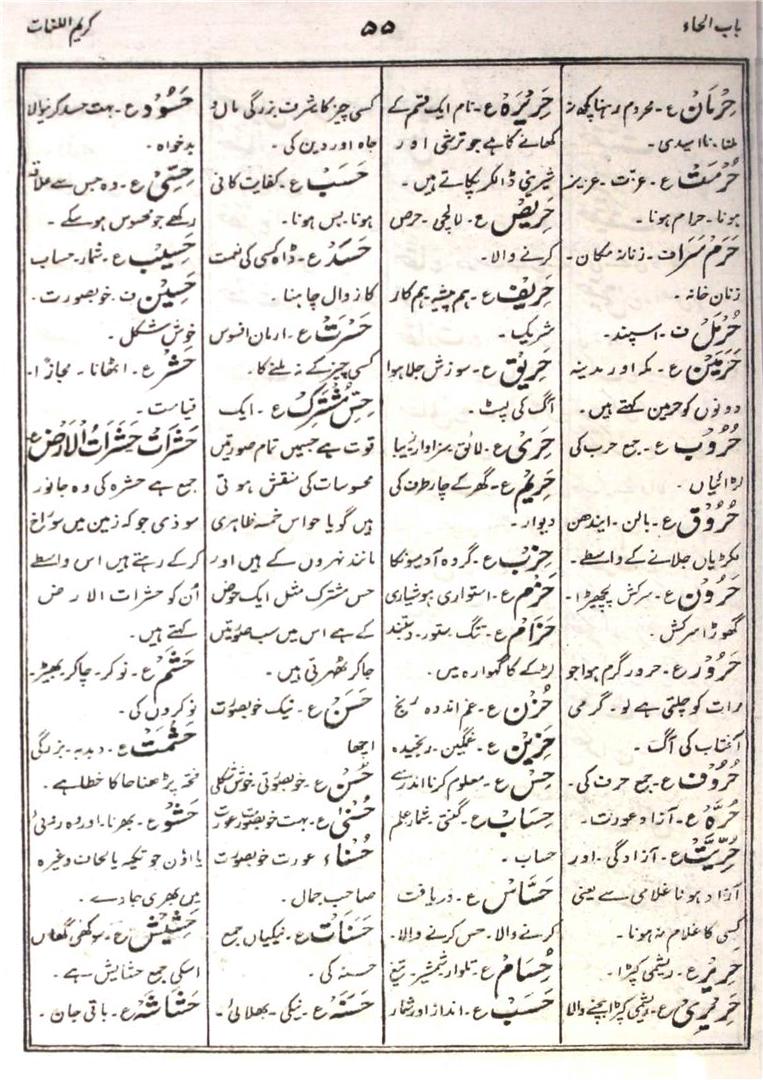 باب الحاء
۵۵
کریم اللغات
حِرمَان ع۔ محروم رہنا کچھ نہ
ملنا۔ ناامیدی۔
حُرمَت ع۔ عزت۔ عزیز
ہونا۔ حرام ہونا۔
حَرَم سَرَا ف۔ زنانہ مکان۔
زنان خانہ۔
حُرمُل ف۔ اسپند۔
حَرَمَین ع۔ مکہ اور مدینہ
دونوں کو حرمین کہتے ہیں۔
حُرُوب ع۔ جمع حرب کی
لڑائیاں۔
حُرُوق ع۔ بالن۔ ایندھن
لکڑیاں جلانے کے واسطے۔
حَرُون ع۔ سرکش پچھیڑا۔
گھوڑا سرکش۔
حَرُور ع۔ حرور گرم ہوا جو
رات کو چلتی ہے لو۔ گرمی
آفتاب کی آگ۔
حُرُوف ع۔ جمع حرف کی۔
حُرَّہ ع۔ آزاد عورت۔
حُرِّیَّت ع۔ آزادگی۔ اور
آزاد ہونا غلامی سے یعنی
کسی کا غلام نہ ہونا۔
حَرِیر ع۔ ریشمی کپڑا۔
حَرِیرِی ع۔ ریشمی کپڑا بیچنے والا
حَرِیرَہ ع۔ نام ایک قسم کے
کھانے کا ہے جو ترشی اور
شیرینی ڈالکر پکاتے ہیں۔
حَرِیص ع۔ لالچی۔ حرص
کرنے والا۔
حَرِیف ع۔ ہم پیشہ ہم کار
شریک۔
حَرِیق ع۔ سوزش جلا ہوا
آگ کی لپٹ۔
حَرِی ع۔ لائق۔ سزاوار۔ زیبا
حَرِیم ع۔ گھر کے چار طرف کی
دیوار۔
حِزب ع۔ گروہ آدمیونکا
حَزم ع۔ استواری ہوشیاری
حِزَام ع۔ تنگ ستور۔ دستبند
لڑکے کا گہوارہ میں۔
حُزن ع۔ غم اندوہ رنج
حَزِین ع۔ غمگین۔ رنجیدہ
حِس ع۔ معلوم کرنا اندر سے
حِسَاب ع۔ گنتی۔ شمار علم
حساب۔
حَسَّاس ع۔ دریافت
کرنے والا۔ حس کرنے والا۔
حُسَام ع۔ تلوار شمشیر۔ تیغ
حَسَب ع۔ انداز اور شمار
کسی چیز کا۔ شرف بزرگی مال و
جاہ اور دین کی۔
حَسب ع۔ کفایت کافی
ہونا۔ بس ہونا۔
حَسَد ع۔ ڈاہ کسی کی نعمت
کا زوال چاہنا۔
حَسرَت ع۔ ارمان افسوس
کسی چیز کے نہ ملنے کا۔
حِسِّ مُشتَرَک ع۔ ایک
قوت ہے جسمیں تمام صورتیں
محسوسات کی منقش ہوتی
ہیں گویا حواس خمسہ ظاہری
مانند نہروں کے ہیں اور
حس مشترک مثل ایک حوض
کے ہے اس میں سب صورتیں
جاکر ٹھہرتی ہیں۔
حَسَن ع۔ نیک خوبصورت
اچھا
حُسن ع۔ خوبصورتی۔ خوش شکلی
حُسنٰی ع۔ بہت خوبصورت عورت
حَسنَاء ع عورت خوبصورت
صاحب جمال۔
حَسَنَات ع۔ نیکیاں جمع
حسنہ کی۔
حَسَنَہ ع۔ نیکی۔ بھلائی۔
حَسُود ع۔ بہت حسد کرنیوالا
بدخواہ۔
حِسِّی ع۔ وہ جس سے علاقہ
رکھے جو محسوس ہوسکے۔
حَسِیب ع۔ شمار۔ حساب
حَسِین ف۔ خوبصورت۔
خوش شکل۔
حَشر ع۔ اٹھانا۔ مجازًا۔
قیامت۔
حَشَرَات حَشَرَاتُ الاَرض ع
جمع ہے حشرہ کی وہ جانور
موذی جو کہ زمین میں سوراخ
کرکے رہتے ہیں اس واسطے
اُن کو حشرات الارض
کہتے ہیں۔
حَشَم ع۔ نوکر۔ چاکر۔ بھیڑ۔
نوکروں کی۔
حَشمَت ع۔ دبدبہ۔ بزرگی
فتحہ پڑھنا حا کا خطا ہے۔
حَشو ع۔ بھرنا۔ اور وہ روئی
یا اون جو تکیہ یا لحاف وغیرہ
میں بھری جاوے۔
حَشِیش ع۔ سوکھی گھاس
اسکی جمع حشایش ہے۔
حَشَاشَہ ع۔ باقی جان۔